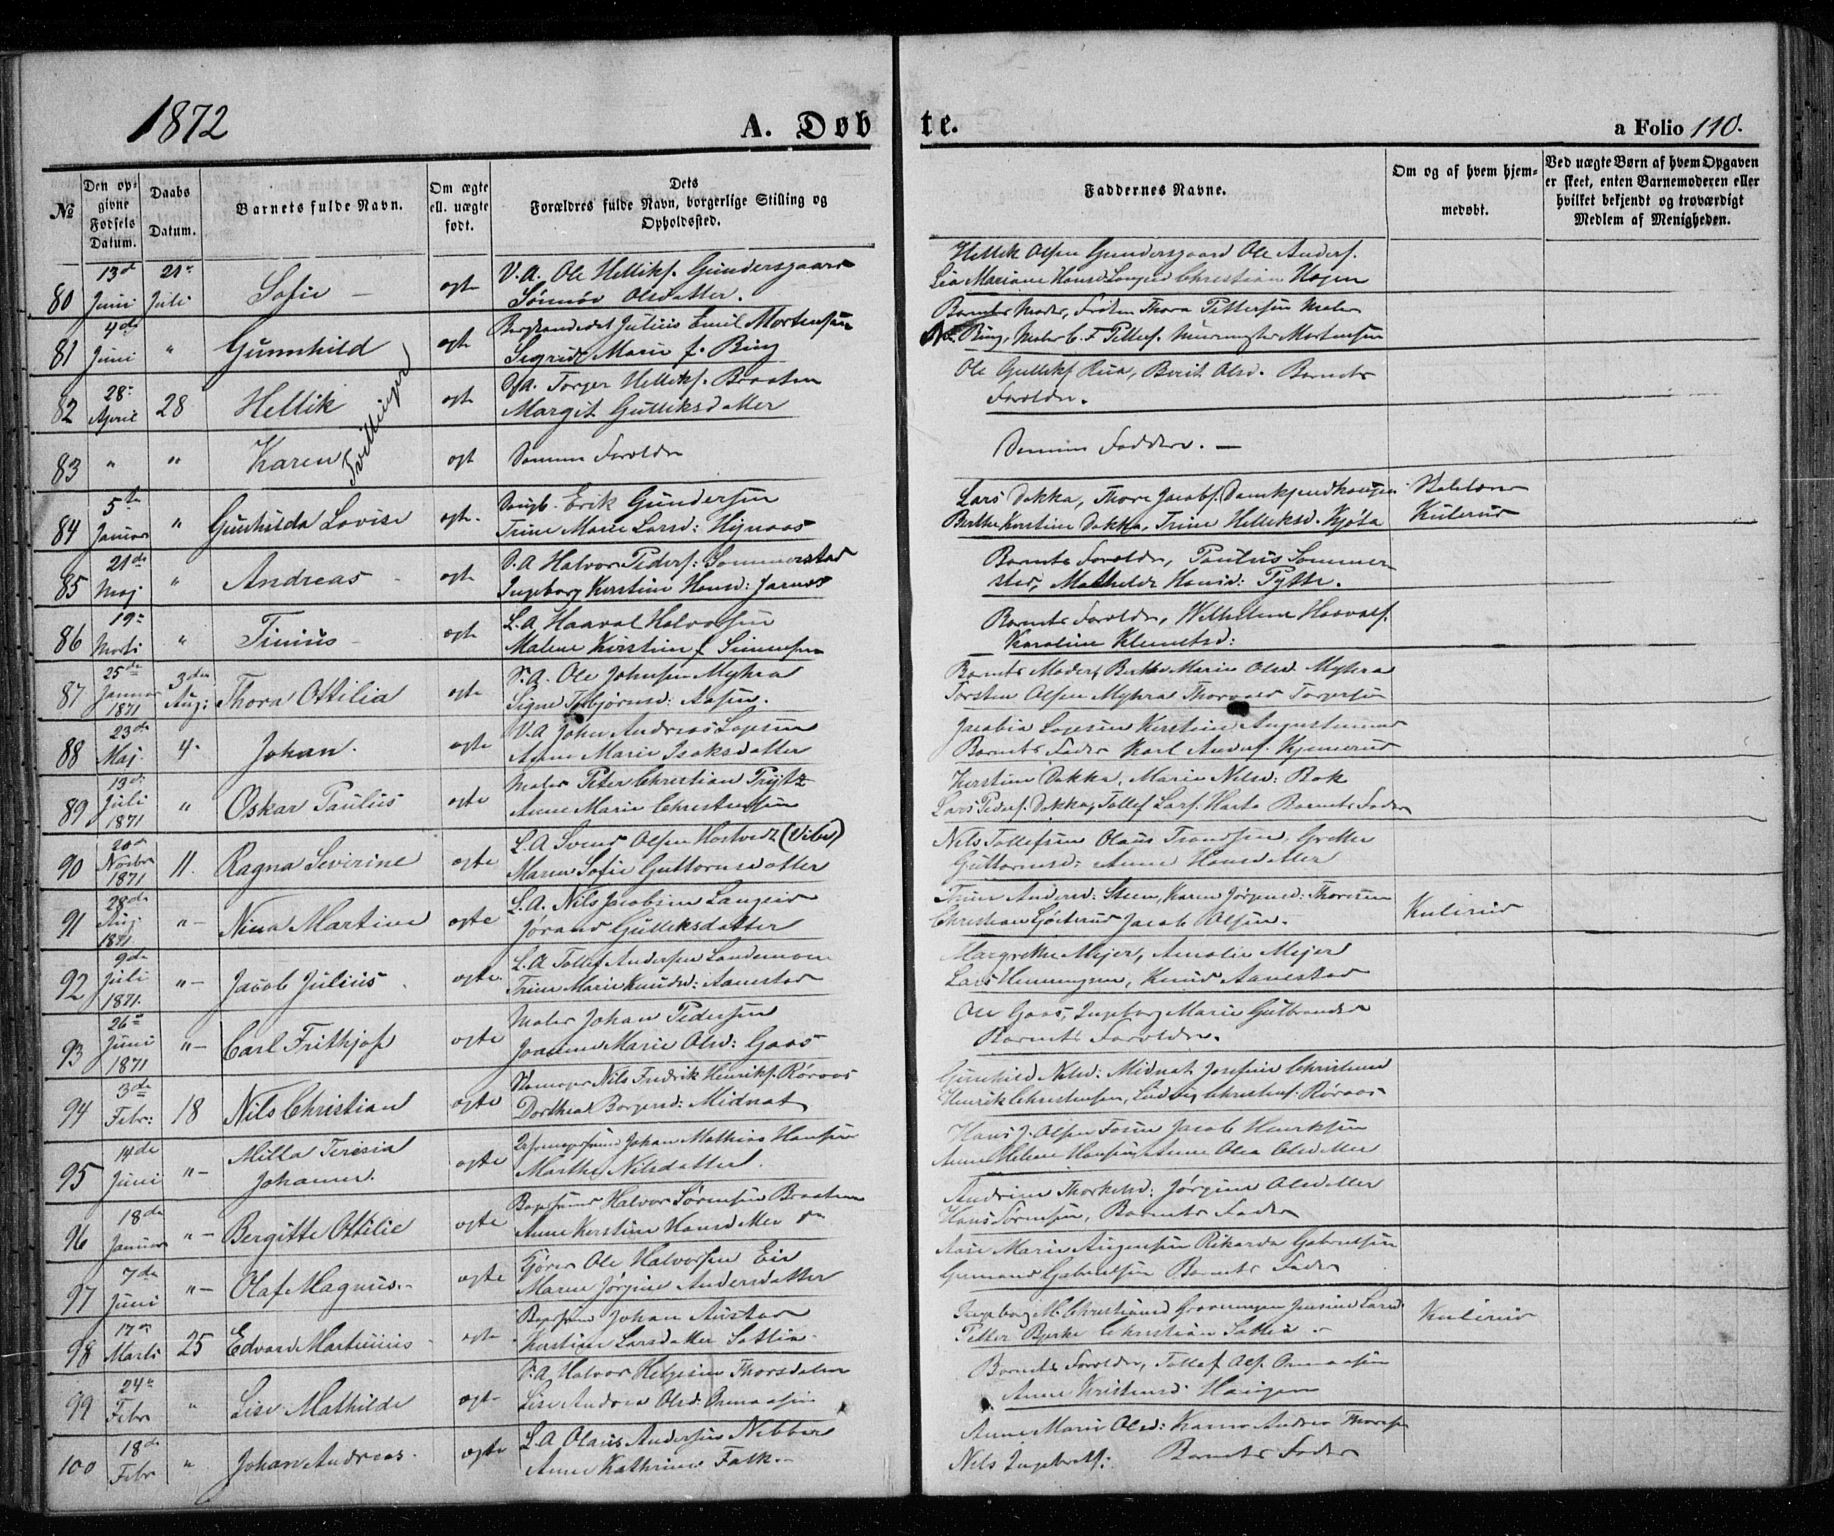 1872
A. Døbte.
a Folio 110.
№
Den opgivne Fødsels Datum.
Daabs Datum.
Barnets fulde Navn.
Om ægte ell. uægte født.
Dets Forældres fulde Navn, borgerlige Stilling og Opholdssted.
Faddernes Navne.
Om og af hvem hjemmedøbt.
Ved uægte Børn af hvem Opgaven er skeet, enten Barnemoderen eller hvilket bekjendt og troværdigt Medlem af Menigheden.
80 13d Juni 21 Juli Sofie ægte V.A. Ole Helliks. Gundersgaard
Olsdatter.
Hellik Olsen Gundersgaard Ole Anders.
Christian Hojen
81 4de Juni " Gunnhild ægte Julius Emil Mortensen
Sigrid Marie f. Bing
Barnets Moder, Frøken Thora Pettersen Maler
Bing, Maler C. F. Petters. Murmester Mortensen
82 28 April 28 Hellik Tvillinger ægte Torger Helliks. Braaten
Margit Gulliksdatter
Ole Gulliks Rua, Berit Olsd. Barnets
Forældre.
83 " " Karen ægt Samme Forældre
Samme Faddere. —
84 5te Januar " Gunhilda Lovise ægte. Erik Gundersen
Trine Marie Larsd:
Lars Dokka, Thore Jacobs.
Berthe Kerstine Dokka, Trine Helliksd. Kjøta
Kulerud
85 21de Maj " Andreas ægte V.A Halvor Peders. Sommerstad
Ingeborg Kerstine Hansd: Jarnes
Barnets Forældre, Paulus Sommerstad, Mathilde Hansd: Pytte.
86 19 Marts " Tinius ægte L.A. Haaval Halvorsen
Malene Kirstine f. Simensen
Barnets Forældre, Wilhelm Haavals.
Karoline Klemetsd:
87 25de Januar 1871 3die Aug: Thora Ottilia ægte Ole Johnsen Myhra
Signe Torbjørnsd: Aasen.
Barnets Moder, Berthe Marie Olsd. Myhra
Torsten Olsen Myhra Thorvald Torgersen
88 23de Maj. 4. Johan. ægte V.A John Andreas Lopsen
Anne Marie Isaksdatter
Jacobia Lopsen Kerstine
Barnets Fader Karl Anders. Kjennerud
89 13de Juli 1871 " Oskar Paulus ægte Maler Peter Christian Prytz
Anne Marie Christensen
Kerstine Dokka, Marie Nilsd: Bok
Lars Peders. Dokka, Tollef Lars. Barnets Fader
90 20de Novbr 1871 11. Ragna Severine ægte L.A Svend Olsen Hostvedt (Vibe)
Maren Sofie Guttormsdatter
Nils Tollefsen Olaus Trondsen, Grethe
Guttormsd: Anne Hansdatter
91 28de Aug. 1871 "— Nina Martine ægte L.A. Nils Jacobsen Langerud
Jørand Gulliksdatter
Trine Andersd: Steen, Karen Jørgensd: Thoresen
Christian Jacob Olsen.
Kulerud
92 9de Juli 1871. "— Jacob Julius ægte L.A Tollef Andersen
Trine Marie Knudsd: Aanestad
Margrethe Mejer, Amalie Mejer
Lars Henningsen, Knud Aanestad
93 26 Juni 1871 "— Carl Frithjof ægte Maler Johan Pedersen
Joanne Marie Olsd: Gaas
Ole Gaas, Ingeborg Marie Gulbrandsd
Barnets Forældre.
94 3de Febr: 18 Nils Christian ægte Nils Fredrik Henriks. Røraas
Dorthea Borgersd: Midnat
Gunhild Nilsd: Midnat Josefine Christensd
Henrik Christensen, Ludvig Christens. Røraas
95 14de Juni "— Milla Teresia Johanne. ægte Johan Mathias Hansen
Marthe Nilsdatter.
Hans J. Olsen Jacob Henriksen
Anne Helene Hansen, Anne Olea Olsdatter
96 18de Januar "— Bergitte Ottilie ægte Halvor Sørensen Braaten
Anne Kerstine Hansdatter
Andrine Thorkelsd: Jørgine Olsdatter
Hans Sørensen, Barnets Fader
97 7de Juni "— Olaf Magnus. ægte Ole Halvorsen Eie
Maren Jørgine Andersdatter
Marie Augensen Rikarda Gabrielsen
Gabrielsen Barnets Fader
98 17 Marts 25 Edvard Martinius ægte Johan Austad
Kerstine Larsdatter Sattia
Ingeborg M. Christiansd Jensine Larsd
Petter Bjerke Christian Sattia
Kulerud
99 24 Febr " Lise Mathilde ægte V.A Halvor Helgesen Thorsdalen
Lise Andrea Olsd:
Barnets Forældre, Tollef Ols.
Anne Kristensd Haugen
100 18de Febr " Johan Andreas. ægte L.A. Olaus Andersen Nibber
Anne Kathrine Falk.
Anne Marie Olsd: Karen Andrea Thores.
Nils Ingebrets: Barnets Fader